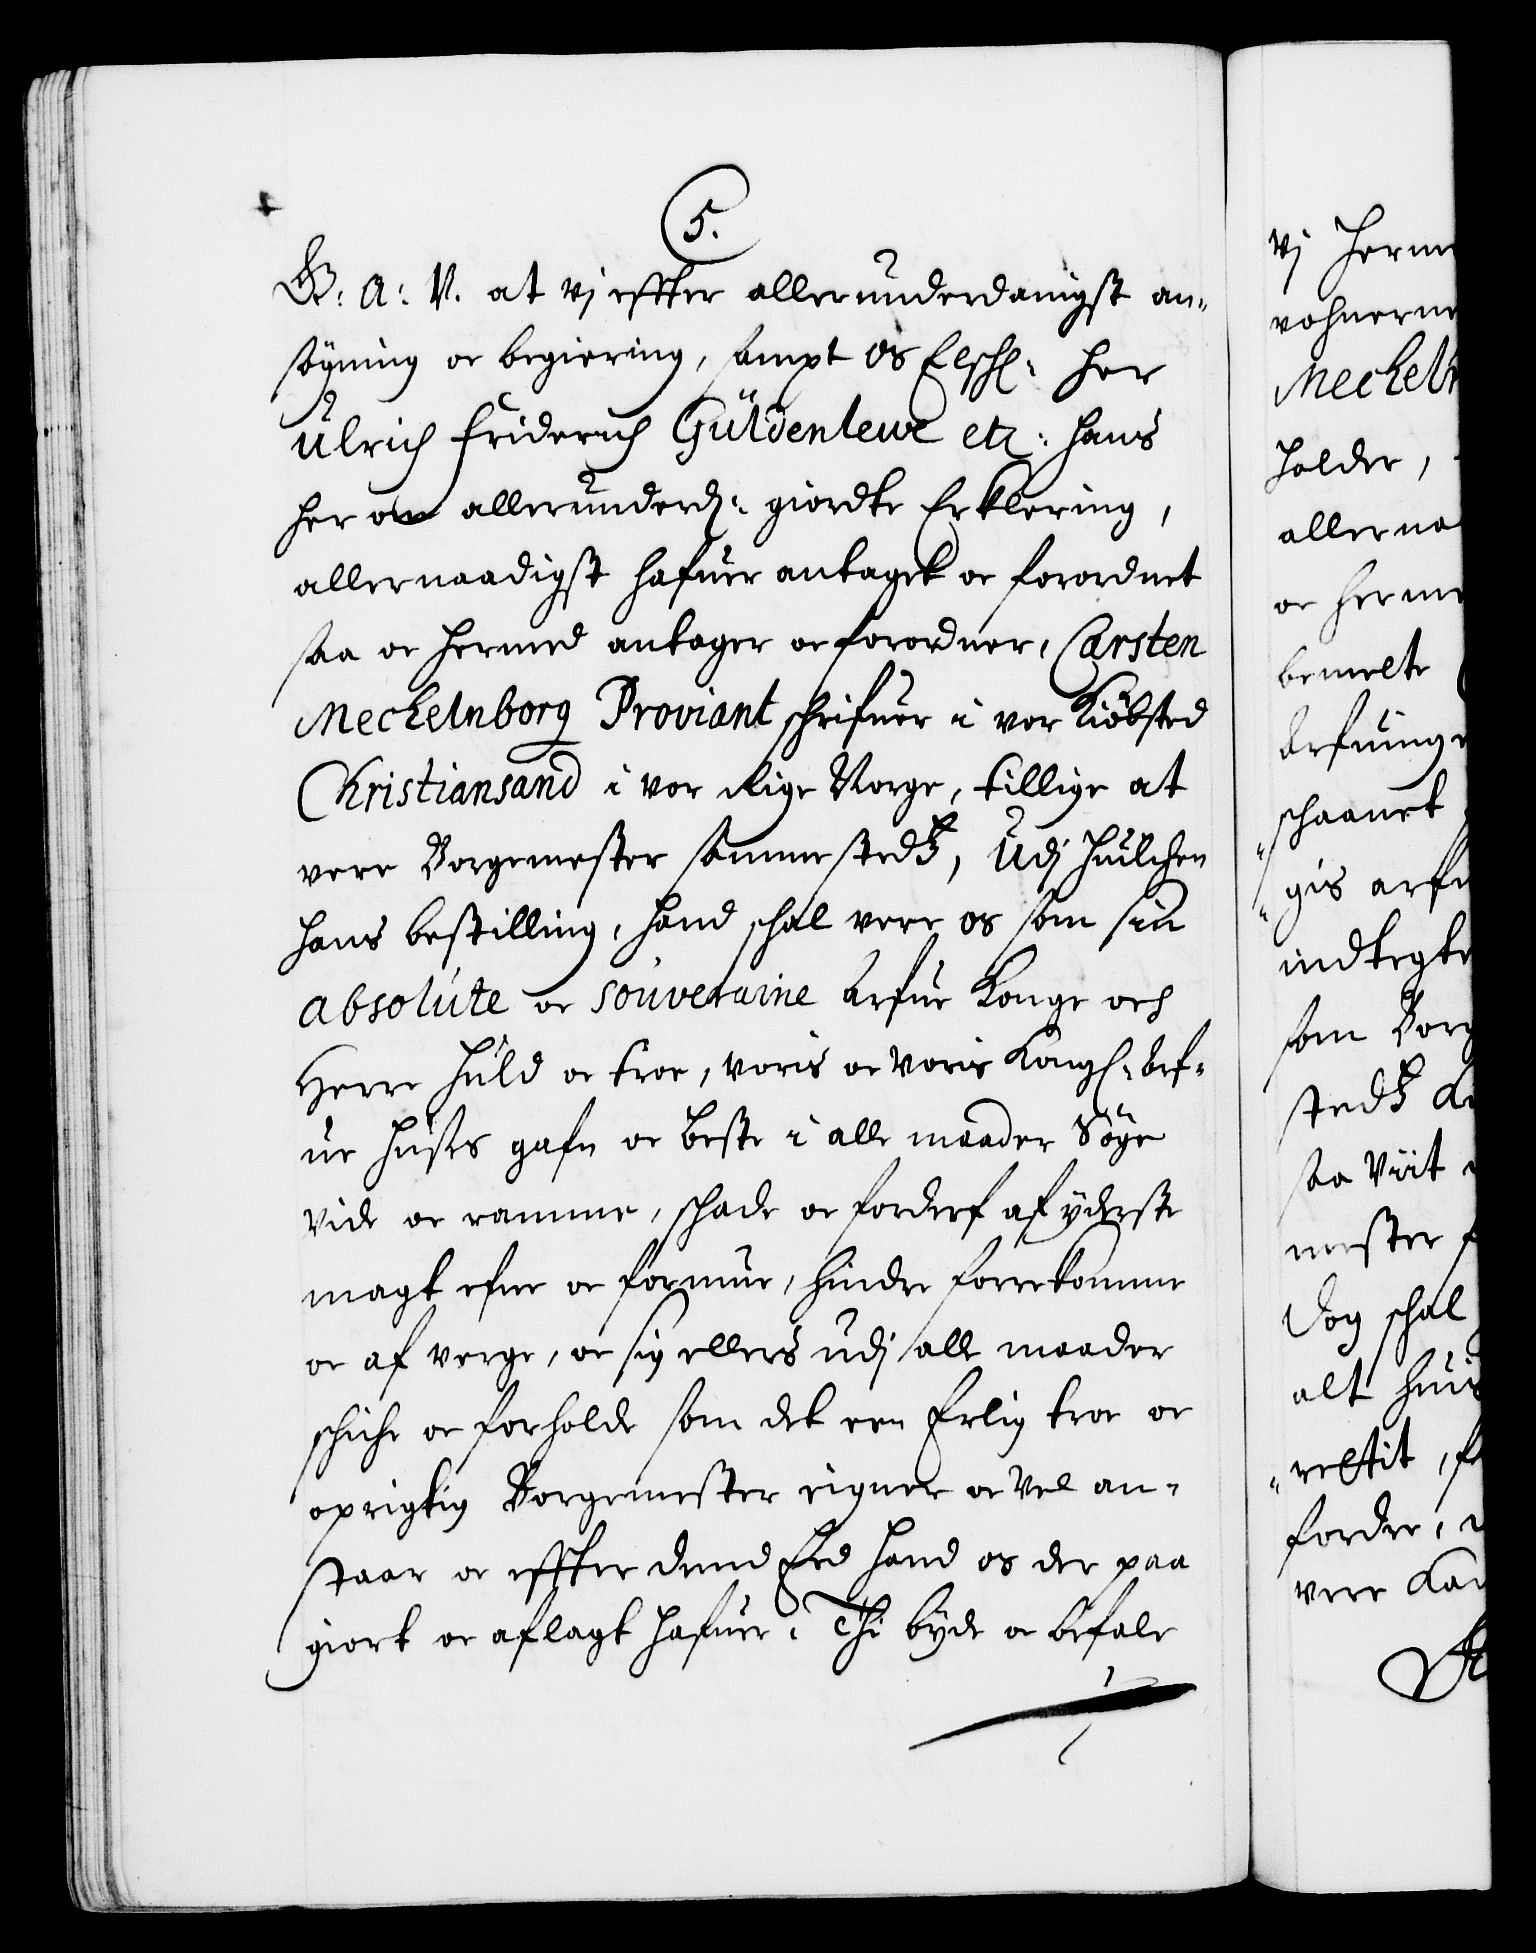 5.
G: A: V. at vj effter allerunderdanigst an-
søgning oc begiering, sampt os Elschl: Her
Ulrich Friderich Güldenlewe etc: hans
her om allerunderd: giordte Erklering,
allernaadigst hafuer antaget oc forordnet
saa oc hermed antager oc forordner, Carsten
Mechelnborg Proviant schrifuer i vor Kiøbsted
Christiansand i vor Rige Norge, tillige at
vere Borgemester sammestedtz, Udj huilchen
hans bestilling, hand schal vere os som sin
absolute oc souveraine Arfue Konge och
Herre huld oc troe, voris oc voris Kongl: Arf-
ue huses gafn oc beste i alle maader Søge
vide oc ramme, schade oc forderf af yderste
magt efne oc formue, hindre forrekomme
oc af verge, oc sig ellers udj alle maader
schiche oc forholde som det een Erlig troe oc
oprigtig Borgemester eigner oc vel an-
staar oc effter dend Eed hand os der paa
giort oc aflagt hafuer. Thi byde oc befale
vj herm
vohnerne
Mecheln
holder,
allerna
oc herm
bemelte
Arfuinge
schaanet
gis arfu
indtegte
som Borg
stedtz
saa viit
mester
Dog schal
alt huis
rettit,
fordre,
vere